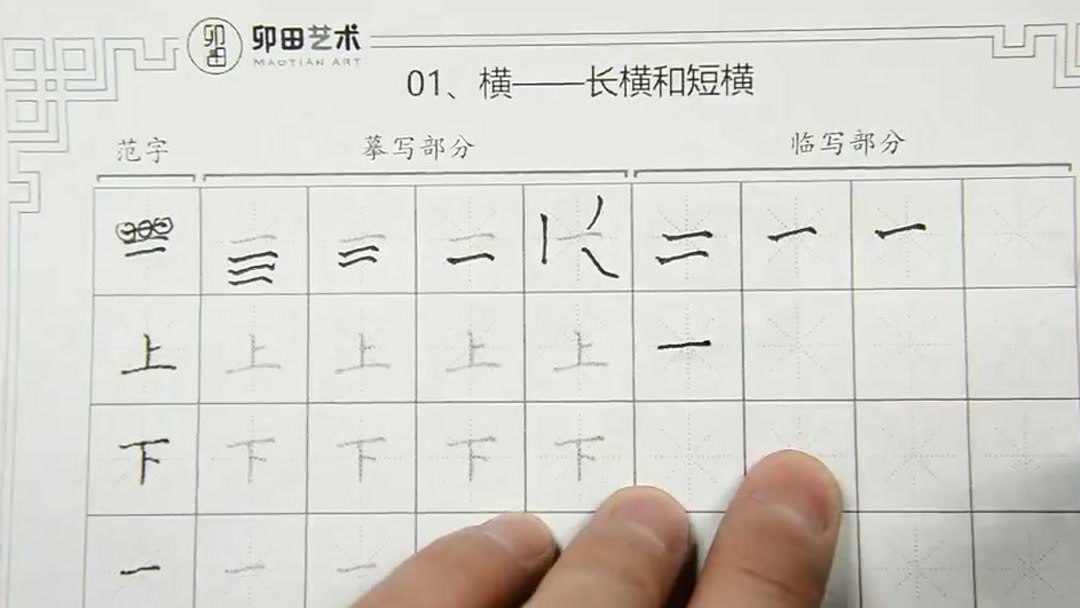 卯田艺术
MAOTIAN ART
01、横——长横和短横
范字 摹写部分 临写部分
二 二 二 二 二 二 一 一
上 上 上 上 上 一
下 下 下 下 下
一 一 一